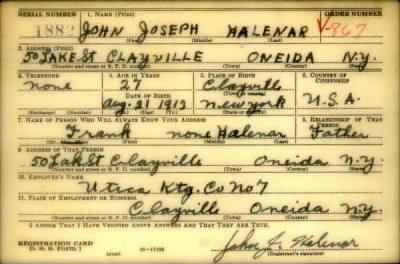 SERIAL NUMBER 1. NAME (Print) ORDER NUMBER
188 JOHN JOSEPH HALENAR V-867
(First) (Middle) (Last)
2. ADDRESS (Print)
50 LAKE ST CLAYVILLE ONEIDA N.Y.
(Number and street or R. F. D. number) (Town) (County) (State)
3. TELEPHONE 4. AGE IN YEARS 5. PLACE OF BIRTH 6. COUNTRY OF CITIZENSHIP
none 27 Clayville
DATE OF BIRTH (Town or county)
Aug. 21 1913 New York U.S.A.
(Exchange) (Number) (Mo.) (Day) (Yr.) (State or country)
7. NAME OF PERSON WHO WILL ALWAYS KNOW YOUR ADDRESS 8. RELATIONSHIP OF THAT PERSON
Frank none Halenar Father
(Mr., Mrs., Miss) (First) (Middle) (Last)
9. ADDRESS OF THAT PERSON
50 Lake St Clayville Oneida N.Y.
(Number and street or R. F. D. number) (Town) (County) (State)
10. EMPLOYER'S NAME
Utica Ktg. Co No 7
11. PLACE OF EMPLOYMENT OR BUSINESS
Clayville Oneida N.Y.
(Number and street or R. F. D. number) (Town) (County) (State)
I AFFIRM THAT I HAVE VERIFIED ABOVE ANSWERS AND THAT THEY ARE TRUE.
REGISTRATION CARD
D. S. S. Form 1 (over) 16-17105 John J. Halenar
(Registrant's signature)